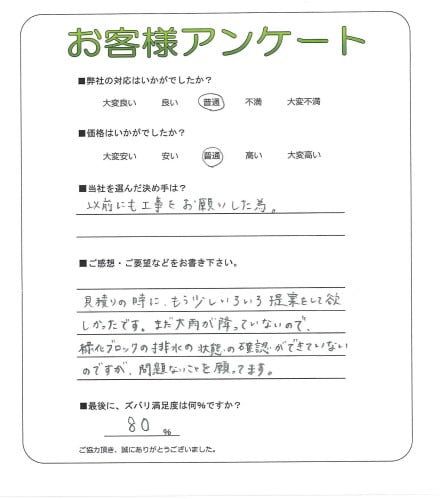 お客様アンケート
■弊社の対応はいかがでしたか？
大変良い 良い 普通 不満 大変不満
■価格はいかがでしたか？
大変安い 安い 普通 高い 大変高い
■当社を選んだ決め手は？
以前にも工事をお願いした為。
■ご感想・ご要望などをお書き下さい。
見積りの時に、もう少しいろいろ提案をして欲
しかったです。まだ大雨が降っていないので、
緑化ブロックの排水の状態の確認ができていない
のですが、問題ないことを願ってます。
■最後に、ズバリ満足度は何％ですか？
80 %
ご協力頂き、誠にありがとうございました。